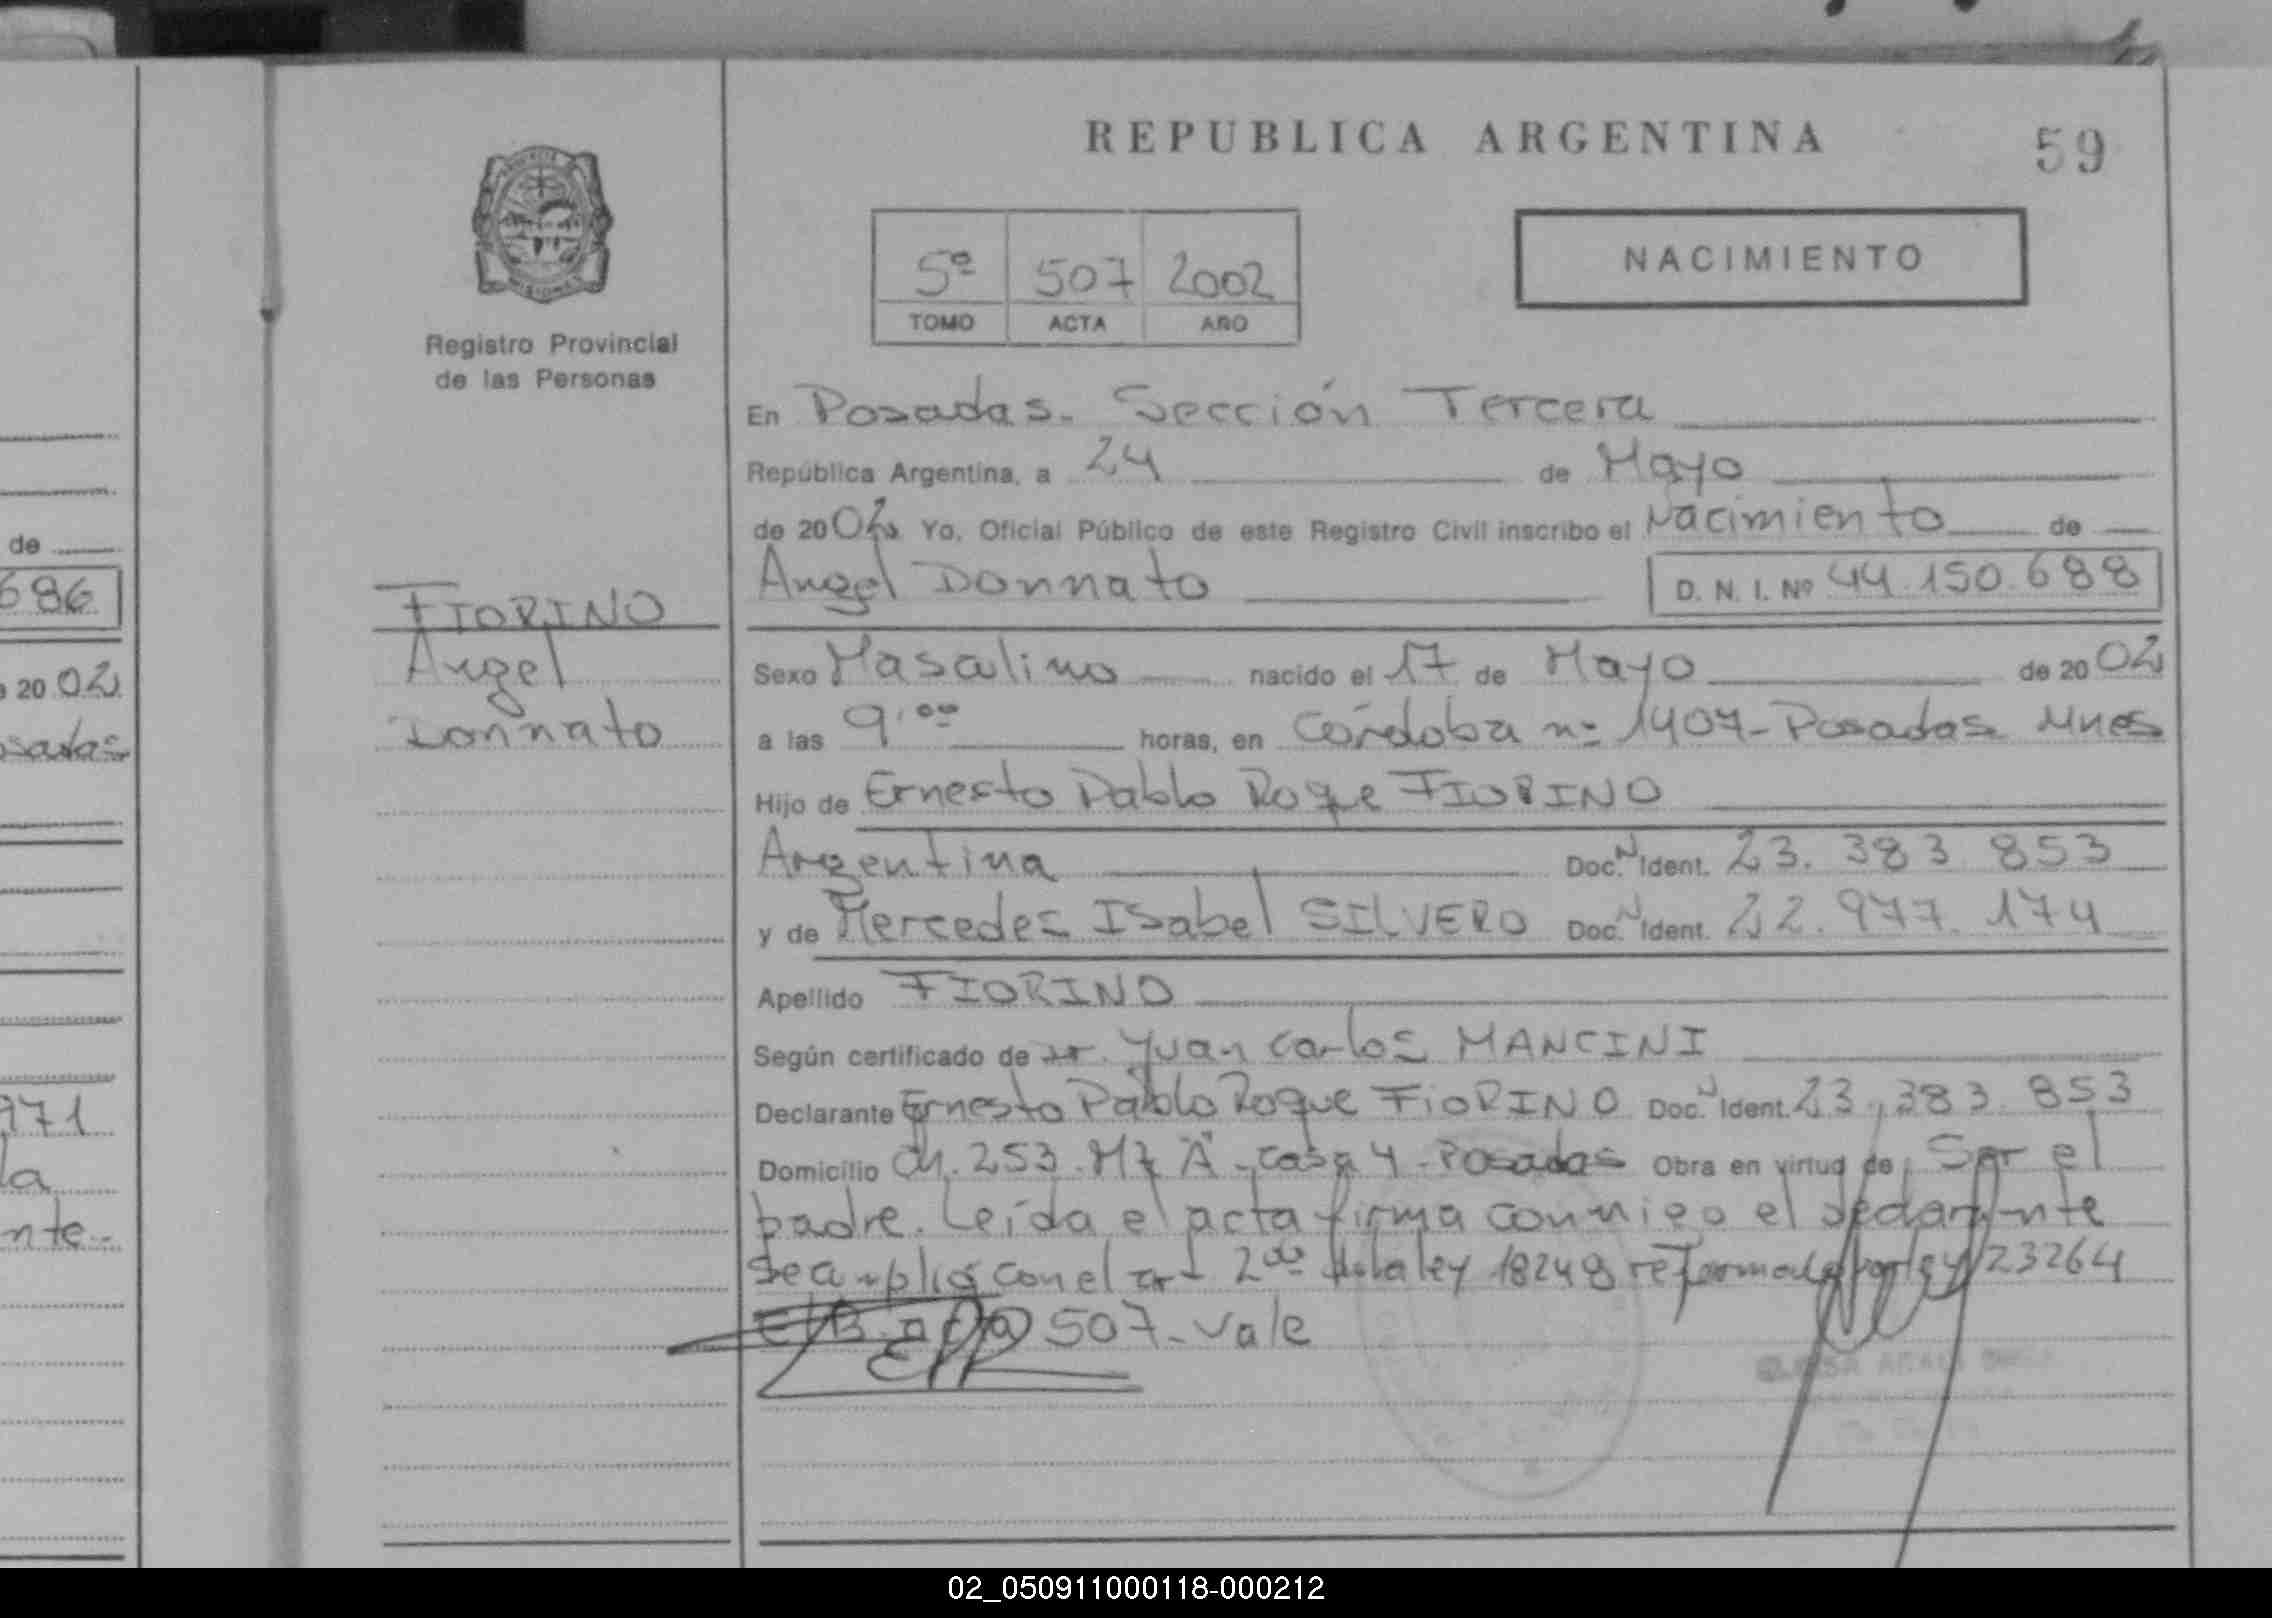 REPUBLICA ARGENTINA
59
5º 507 2002
TOMO ACTA AÑO
NACIMIENTO
Registro Provincial
de las Personas
En Posadas. Sección Tercera
República Argentina, a 24 de Mayo
de 2002 Yo, Oficial Público de este Registro Civil inscribo el Nacimiento de
Angel Donnato D. N. I. Nº 44.150.688
FIORINO
Angel
Donnato
Sexo Masculino nacido el 17 de Mayo de 2002
a las 9,00 horas, en Córdoba nº 1407-Posadas Mnes
Hijo de Ernesto Pablo Roque FIORINO
Argentina Doc. N Ident. 23.383 853
y de Mercedes Isabel SILVERO Doc. N Ident. 22.977.174
Apellido FIORINO
Según certificado de Juan Carlos MANCINI
Declarante Ernesto Pablo Roque FiORINO Doc. N Ident. 23.383.853
Domicilio Ch. 253. Mz "A"-casa 4-Posadas Obra en virtud de Ser el
padre. Leída el acta firma conmigo el declarante
Se cumplió con el art 2do de la ley 18248 reformada por ley 23264
507-vale
de
686
2002
osadas
971
la
nte.
02_050911000118-000212